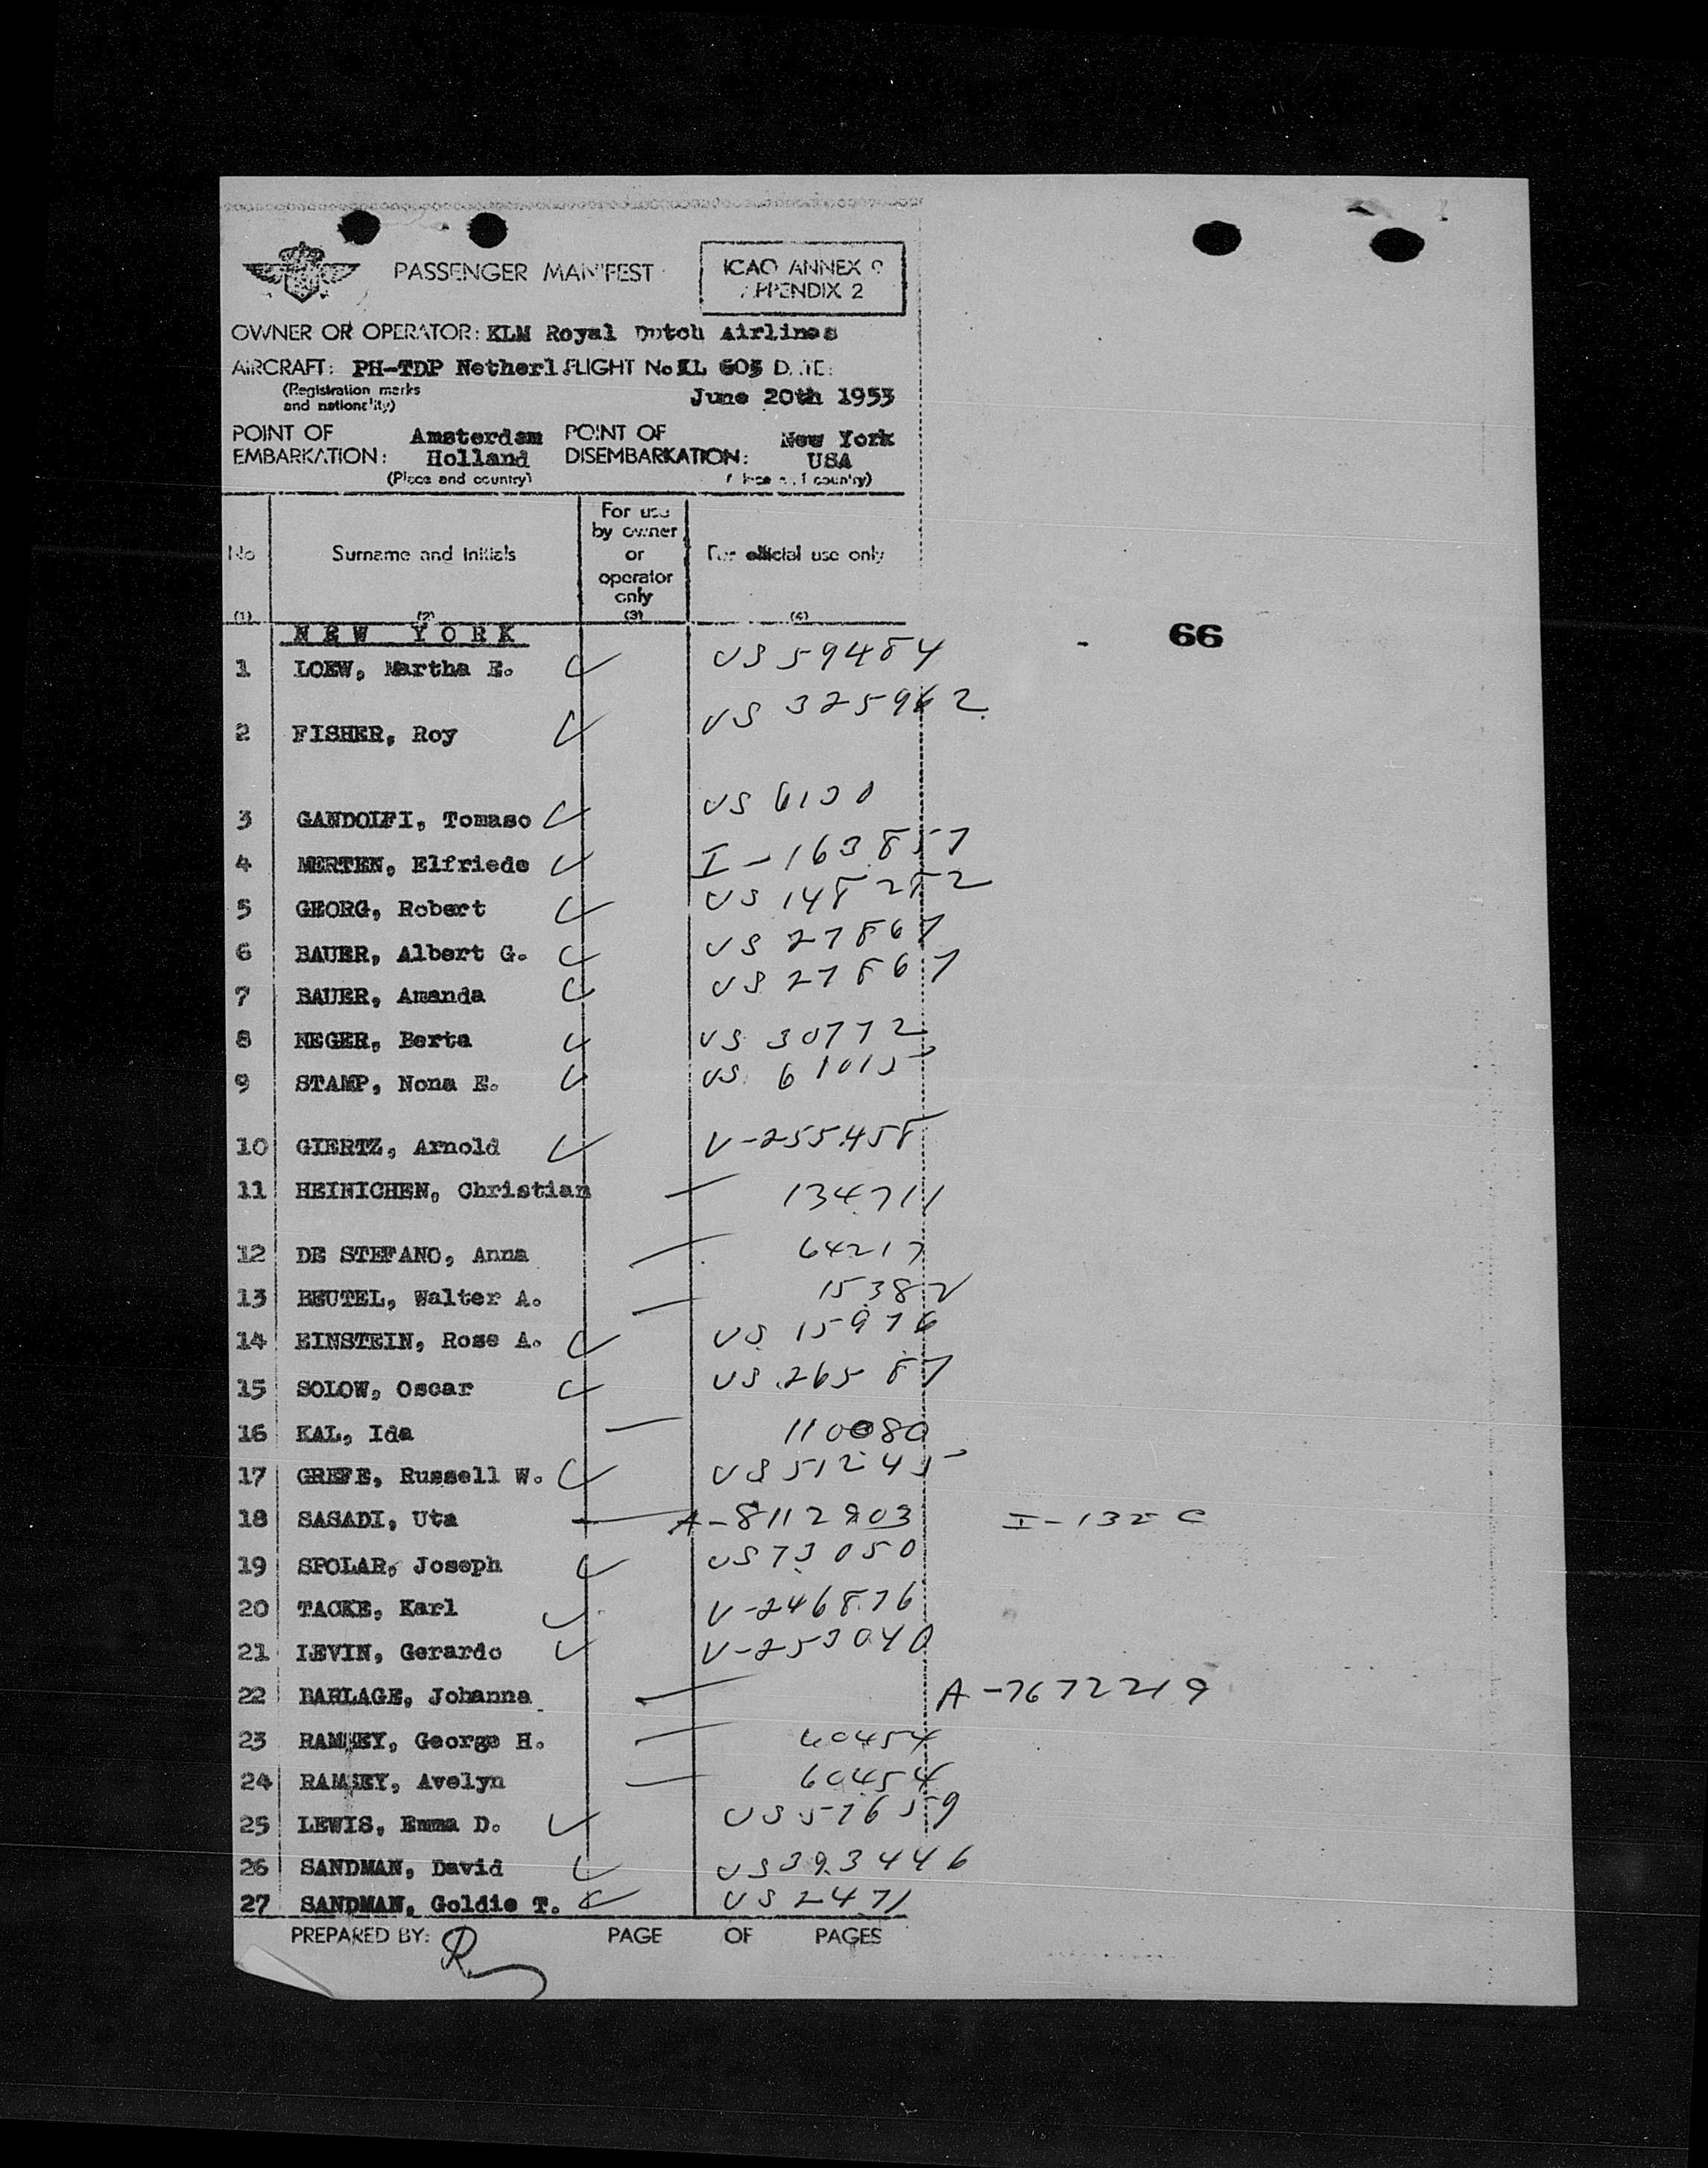 PASSENGER MANIFEST
ICAO ANNEX 9
APPENDIX 2
OWNER OR OPERATOR: KLM Royal Dutch Airlines
AIRCRAFT: PH-TDP Netherl FLIGHT No KL 603 DATE:
(Registration marks
and nationality)
June 20th 1953
POINT OF EMBARKATION: Amsterdam Holland
(Place and country)
POINT OF DISEMBARKATION: New York USA
(Place and country)
No Surname and initials For use by owner or operator only For official use only
(1) (2) (3) (4)
NEW YORK
66
1 LOEW, Martha E. US 59484
2 FISHER, Roy US 325962
3 GANDOLFI, Tomaso US 6130
4 MERTEN, Elfriede I-163857
5 GEORG, Robert US 148282
6 BAUER, Albert G. US 27867
7 BAUER, Amanda US 27867
8 NEGER, Berta US 30772
9 STAMP, Nona E. US 61015
10 GIERTZ, Arnold V-255458
11 HEINICHEN, Christian 134711
12 DE STEFANO, Anna 64217
13 BEUTEL, Walter A. 15382
14 EINSTEIN, Rose A. US 15976
15 SOLOW, Oscar US 26587
16 KAL, Ida 110080
17 GREFE, Russell W. US 51245
18 SASADI, Uta A-8112903
19 SPOLAR, Joseph US 73050
20 TACKE, Karl V-246876
21 LEVIN, Gerardo V-253040
22 BAHLAGE, Johanna A-7672219
23 RAMSEY, George H. 60454
24 RAMSEY, Avelyn 60454
25 LEWIS, Emma D. US 57659
26 SANDMAN, David US 393446
27 SANDMAN, Goldie T. US 2471
PREPARED BY: PAGE OF PAGES